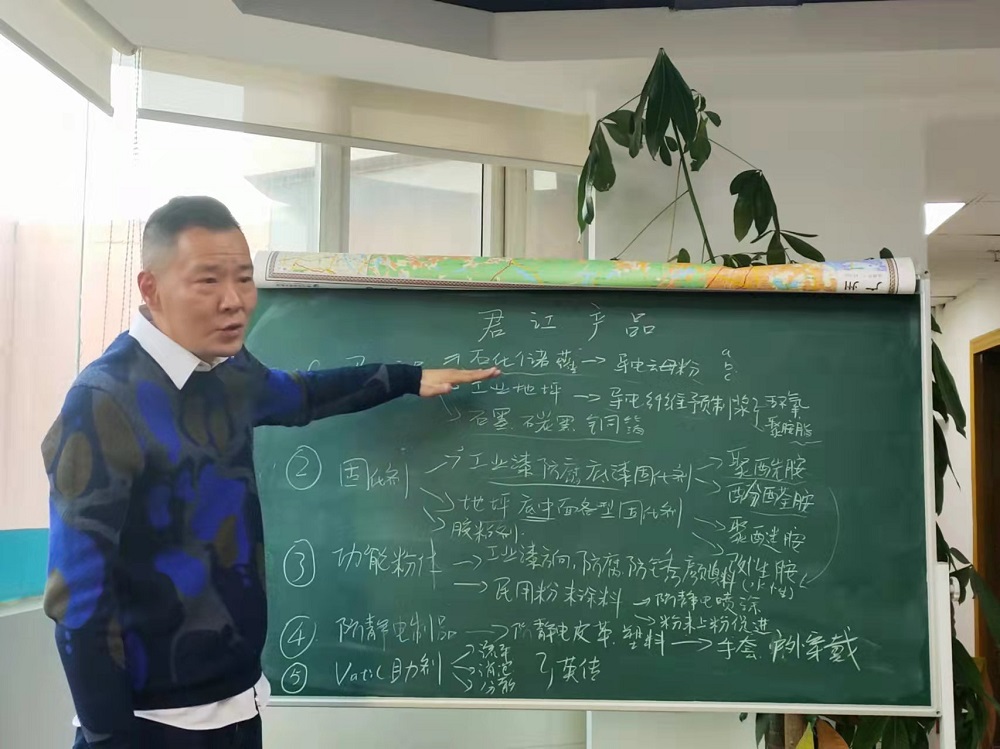 君江产品
石化储藏 → 导电云母粉 a b c
工业地坪 → 导电纤维预制浆 环氧
聚胺脂
石墨 碳黑
② 固化剂 工业漆防腐底漆固化剂 聚酰胺
酚醛胺
地坪底中面各型固化剂 聚酰胺
胶粉剂
③ 功能粉体 → 工业漆方向,防腐,防锈颜料 改性胺
→ 民用粉末涂料 → 防静电喷涂
→ 粉末上粉促进
④ 防静电制品 → 防静电皮革.塑料 → 手套 穿戴
⑤ 助剂 流平
消泡
分散
英传